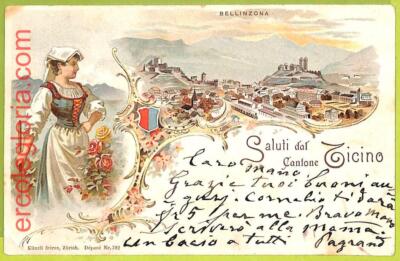 BELLINZONA
ercolegloria.com
Saluti dal
Cantone Ticino
Caro Mano,
Grazie tuoi buoni au-
guri. Cornelio ti darà
fr 5 per me. Bravo Mano
scriverò alla Mamma
un bacio a tutti
Künzli frères, Zürich. Déposé Nr. 702